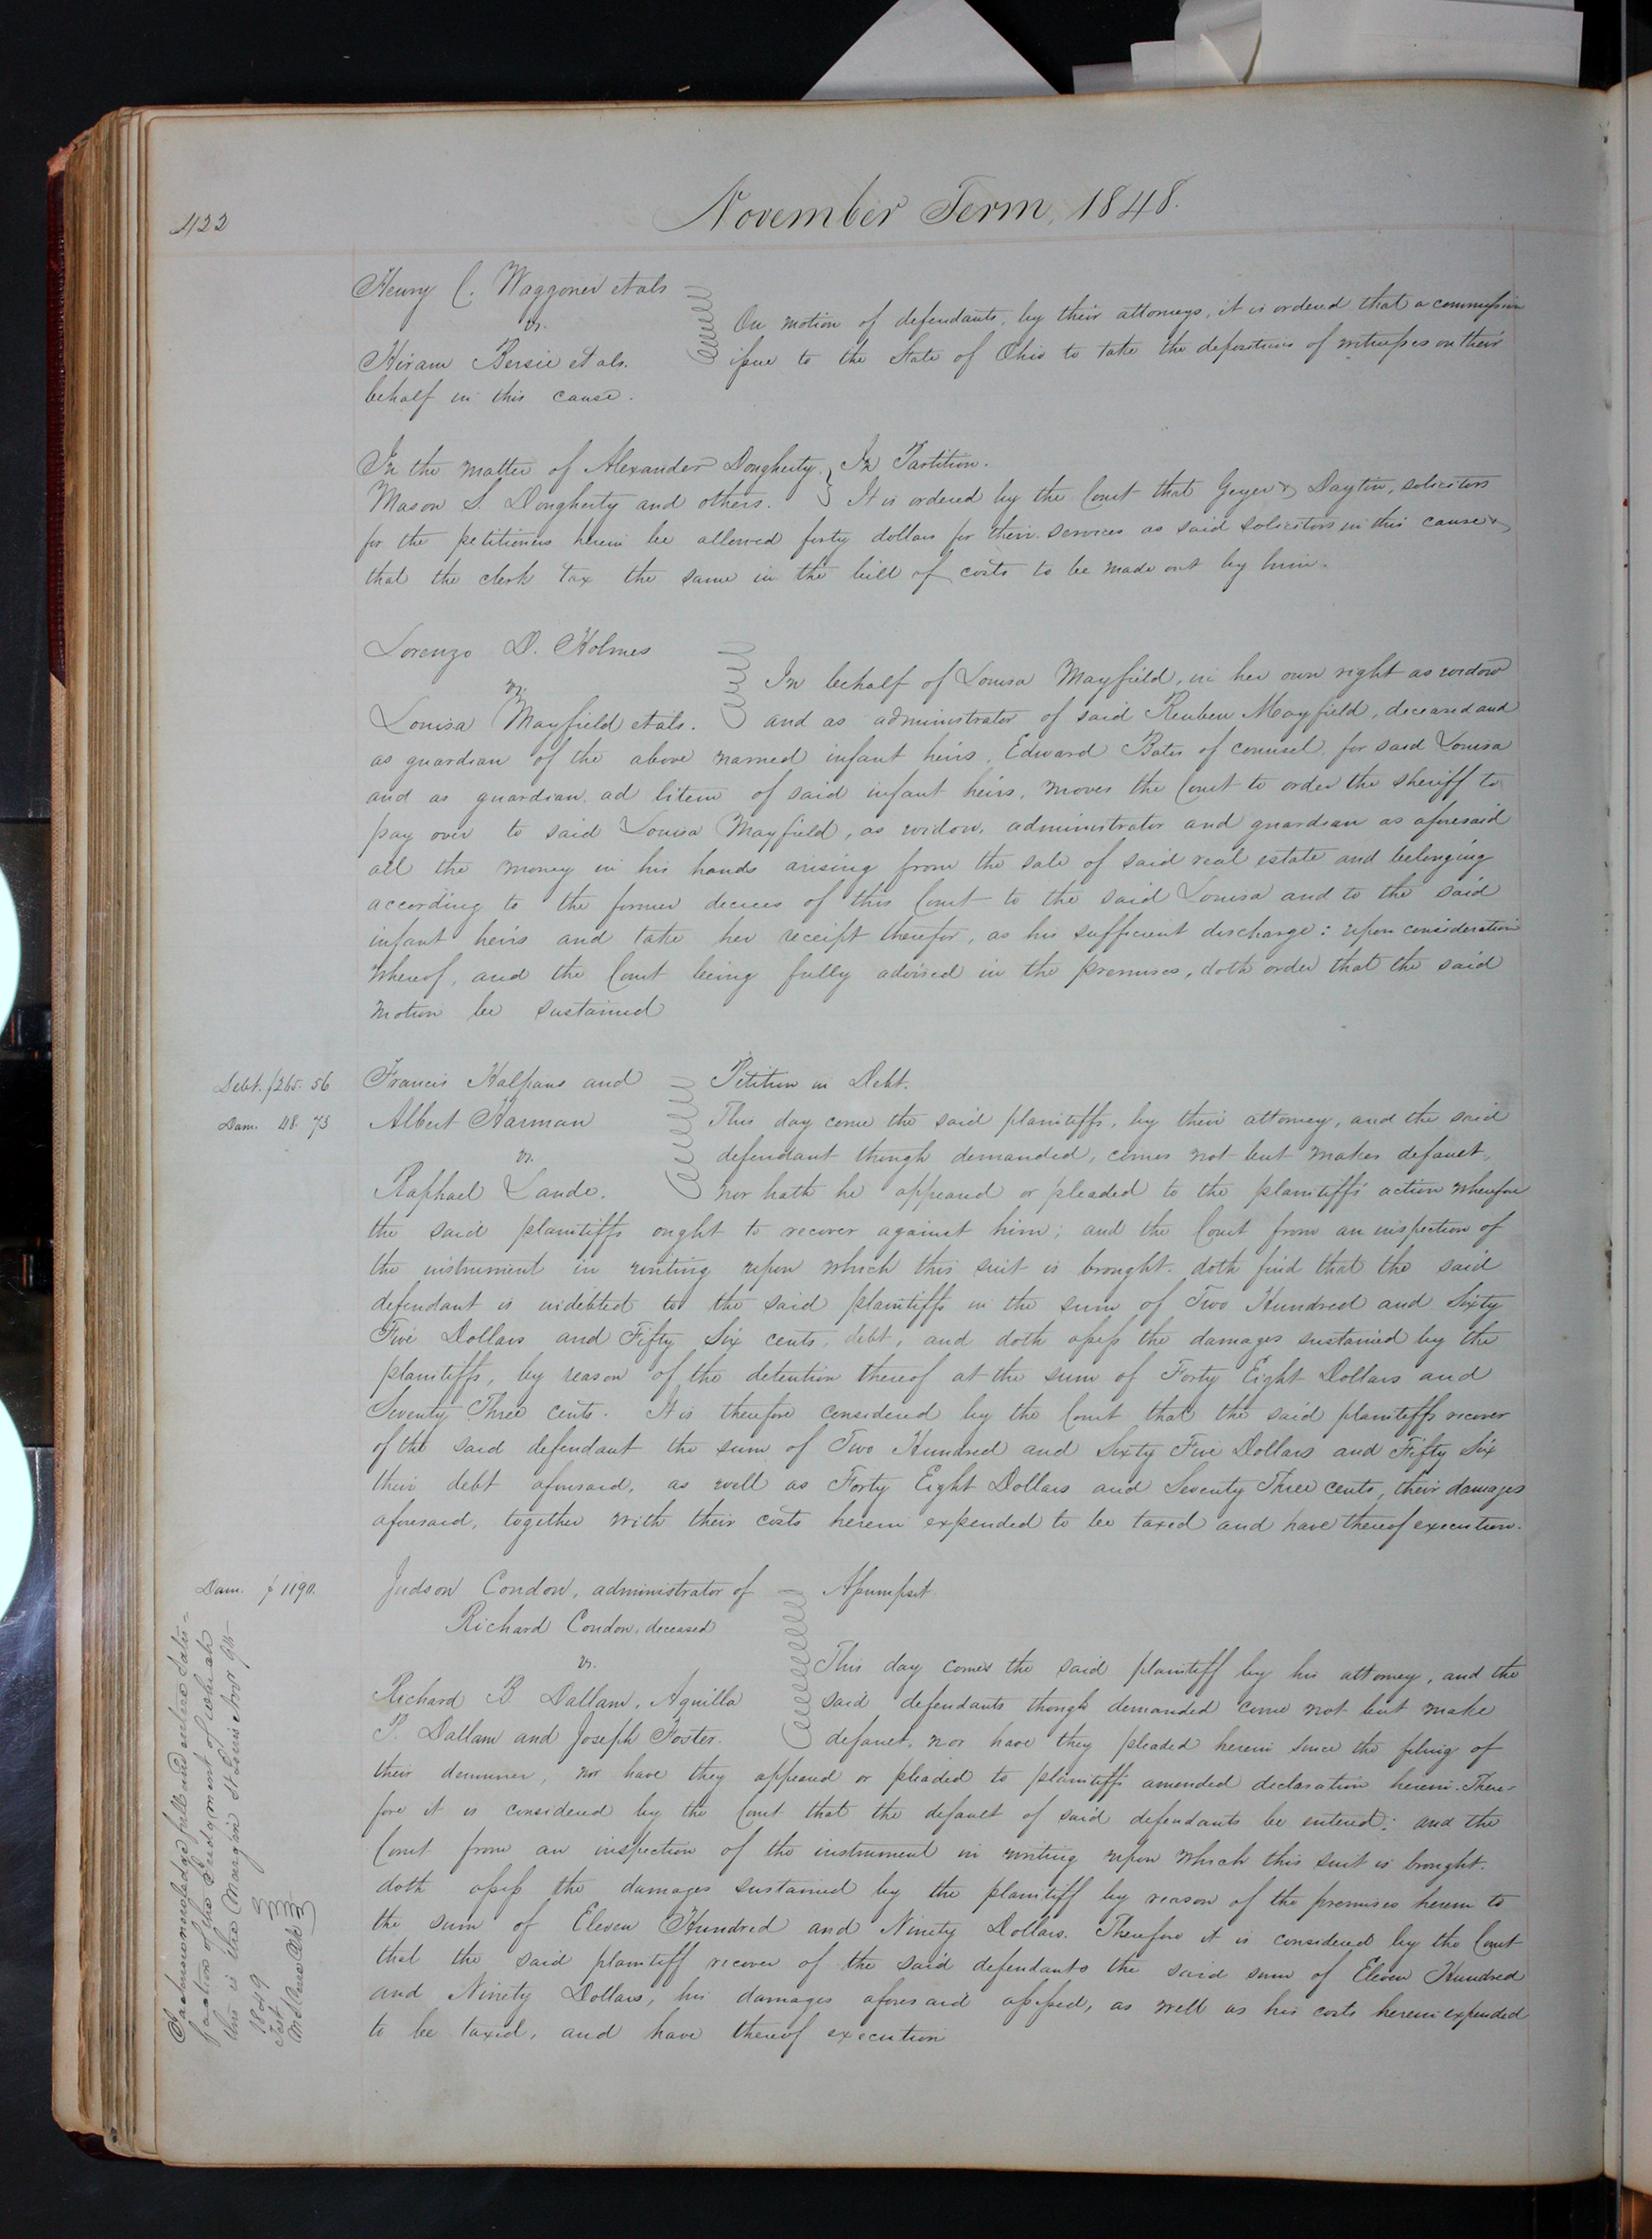 422
November Term, 1848.
Henry C. Waggoner et als
vs.
Hiram Bersie et als.
On motion of defendants, by their attorneys, it is ordered that a commission
issue to the State of Ohio to take the depositions of witnesses on their
behalf in this cause.
In the matter of Alexander Dougherty
Mason S. Dougherty and others.
In Partition.
It is ordered by the Court that Geyer & Dayton, solicitors
for the petitioners herein be allowed forty dollars for their services as said solicitors in this cause &
that the clerk tax the same in the bill of costs to be made out by him.
Lorenzo D. Holmes
vs.
Louisa Mayfield et als.
In behalf of Louisa Mayfield, in her own right as widow
and as administrator of said Reuben Mayfield, deceased and
as guardian of the above named infant heirs, Edward Bates of counsel for said Louisa
and as guardian ad litem of said infant heirs, moves the Court to order the sheriff to
pay over to said Louisa Mayfield, as widow, administrator and guardian as aforesaid
all the money in his hands arising from the sale of said real estate and belonging
according to the former decrees of this Court to the said Louisa and to the said
infant heirs and take her receipt therefor, as his sufficient discharge: upon consideration
whereof, and the Court being fully advised in the premises, doth order that the said
motion be sustained
Debt. $265. 56
Dam. 48. 73
Francis Halpaus and
Albert Harman
vs.
Raphael Lande.
Petition in Debt.
This day come the said plaintiffs, by their attorney, and the said
defendant though demanded, comes not but makes default,
nor hath he appeared or pleaded to the plaintiffs' action wherefore
the said plaintiffs ought to recover against him; and the Court from an inspection of
the instrument in writing upon which this suit is brought. doth find that the said
defendant is indebted to the said plaintiffs in the sum of Two Hundred and Sixty
Five Dollars and Fifty Six cents, debt, and doth assess the damages sustained by the
plaintiffs, by reason of the detention thereof at the sum of Forty Eight Dollars and
Seventy Three cents. It is therefore considered by the Court that the said plaintiffs recover
of the said defendant the sum of Two Hundred and Sixty Five Dollars and Fifty Six
their debt aforesaid, as well as Forty Eight Dollars and Seventy Three cents, their damages
aforesaid, together with their costs herein expended to be taxed and have thereof execution.
Dam. $1190.
Judson Condon, administrator of
Richard Condon, deceased
vs.
Richard B Dallam, Aquilla
P. Dallam and Joseph Foster.
Assumpsit.
This day comes the said plaintiff by his attorney, and the
said defendants though demanded come not but make
default, nor have they pleaded herein since the filing of
their demurrer, nor have they appeared or pleaded to plaintiffs amended declaration herein. There-
fore it is considered by the Court that the default of said defendants be entered: and the
Court from an inspection of the instrument in writing upon which this suit is brought.
doth assess the damages sustained by the plaintiff by reason of the premises herein to
the sum of Eleven Hundred and Ninety Dollars. Therefore it is considered by the Court
that the said plaintiff recover of the said defendants the said sum of Eleven Hundred
and Ninety Dollars, his damages aforesaid assessed, as well as his costs herein expended
to be taxed, and have thereof execution
I acknowledge full and entire satis-
faction of the Judgment of which
this is the Margin St Louis Nov 9th
1849
Test